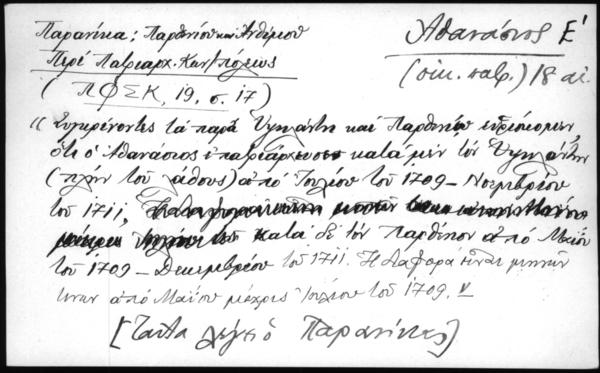 Παρανίκα: Παρθενίου και Ανθίμου
Αθανάσιος Ε'
Περί Πατριαρχ. Κων/πόλεως
(οικ. πατρ.) 18 αι.
(ΠΦΣΚ, 19, σ. 17)
"Συγκρίνοντες τα παρά Υψηλάντη και Παρθενίῳ ευρίσκομεν,
ότι ο Αθανάσιος επατριάρχευσε κατά μεν τον Υψηλάντην
(πλην του λάθους) από Ιουλίου του 1709 – Νοεμβρίου
του 1711,
κατά δε τον Παρθένιον από Μαΐου
του 1709 – Δεκεμβρίου του 1711. Η διαφορά είναι μηνών
τινων από Μαΐου μέχρις Ιουλίου του 1709.
[Ταύτα λέγει ο Παρανίκας]